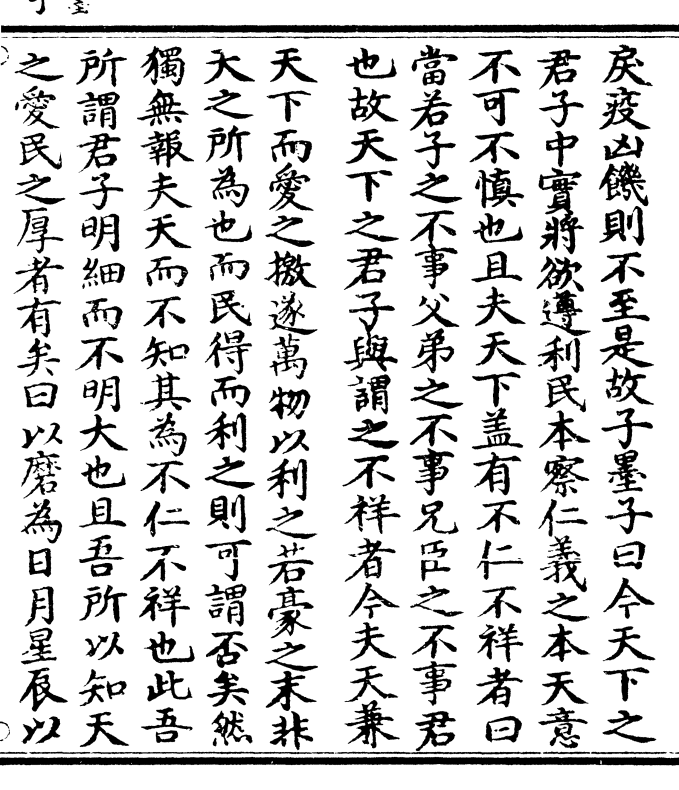 戾疫凶饑則不至是故子墨子曰今天下之
君子中實將欲遵利民本察仁義之本天意
不可不慎也且夫天下盖有不仁不祥者曰
當若子之不事父弟之不事兄臣之不事君
也故天下之君子與謂之不祥者今夫天兼
天下而愛之撽遂萬物以利之若豪之末非
天之所為也而民得而利之則可謂否矣然
獨無報夫天而不知其為不仁不祥也此吾
所謂君子明細而不明大也且吾所以知天
之愛民之厚者有矣曰以磨為日月星辰以